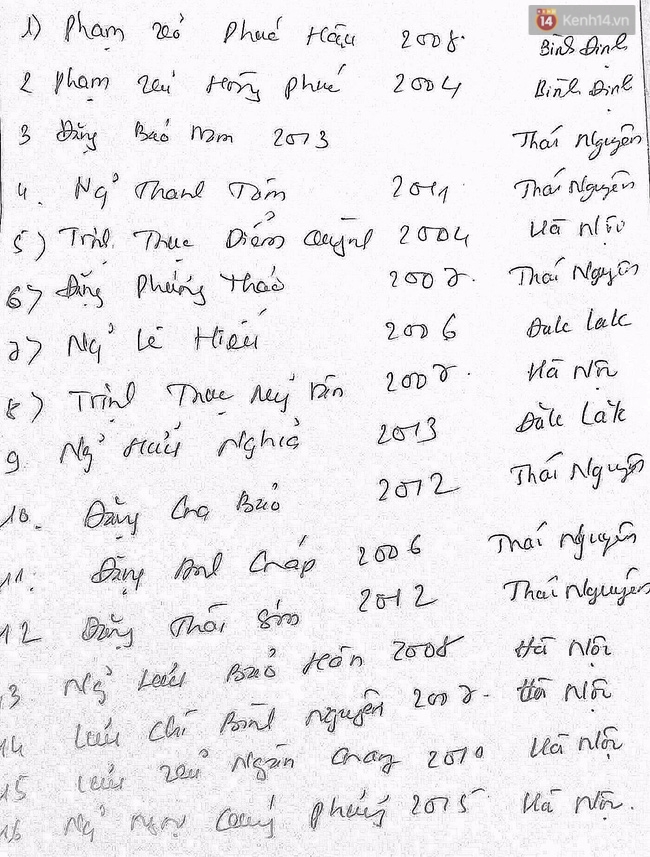 14 Kenh14.vn
1) Phạm Phúc Hậu 2008. Bình Định
2 Phạm Hồng Phúc 2004 Bình Định
3 Đặng Bảo Nam 2013 Thái Nguyên
4. Ng̉ Thanh Tâm 2011 Thái Nguyên
5) Trịnh Thục Diễm Quỳnh 2004 Hà Nội
6) Đặng Phương Thảo 2007. Thái Nguyên
7) Ng̉ Lê Hiếu 2006 Đăk Lăk
8) Trịnh Thục Mỹ Vân 2007. Hà Nội
9. Ng̉ Hữu Nghĩa 2013 Đăk Lăk
10. Đặng Gia Bảo 2012 Thái Nguyên
11. Đặng Anh Pháp 2006 Thái Nguyên
12 Đặng Thái Sơn 2012 Thái Nguyên
13 Ng̉ Lưu Bảo Hân 2008 Hà Nội
14 Lưu Chí Bình Nguyên 2007. Hà Nội
15 Lưu Ngân 2010 Hà Nội
16 Ng̉ Phương 2015 Hà Nội.